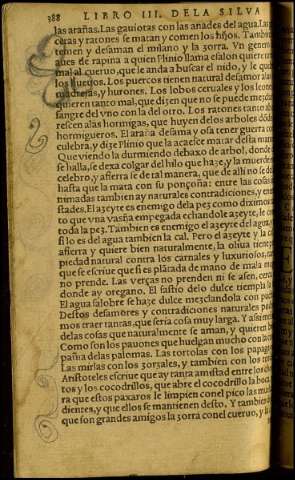 388 LIBRO III. DELA SILVA
las arañas. Las gauiotas con las anades del agua. Las
ceras y ratones se matan y comen los hijos. Tambien
temen y desaman el milano y la zorra. Vn genero
aues de rapina a quien Plinio llama esalon quieren tan
mal al cueruo, que le anda a buscar el nido, y le que
los hueuos. Los puercos tienen natural desamor a las
madrejas, y hurones. Los lobos ceruales y los leones
quieren tanto mal, que dizen que no se puede mezclar
sangre del vno con la del otro. Los ratones tanto abo
rescen alas hormigas, que huyen delos arboles dõde
hormigueros. El araña desama y osa tener guerra con
culebra, y dize Plinio que la acaesce matar desta manera
Que viendo la durmiendo debaxo de arbol, donde
se halla, se dexa colgar del hilo que haze, y la muerde
celebro, y afierra se de tal manera, que de alli no se de
hasta que la mata con su ponçoña: entre las cosas
nimadas tambien ay naturales contradiciones, y en
stades. El azeyte es enemigo dela pez como diximos
to que vna vasija empegada echandole azeyte, le
toda la pez. Tambien es enemigo el azeyte del agua,
si lo es del agua tambien la cal. Pero el azeyte y la
afierra y quiere bien naturalmente, la oliua tiene
piedad natural contra los carnales y luxuriosos, tan
que se escriue que si es plãtada de mano de mala mu
no prende. Las verças no prenden ni se asen, cerca
donde ay oregano. El fastio delo dulce tiempla la
El agua salobre se haze dulce mezclandola con pu
Destos desamores y contradiciones naturales pudi
mos traer tantas, que seria cosa muy larga. Y assi mi
delas cosas que naturalmente se aman, y quieren bien
Como son los pauones que huelgan mucho con la
pañia delas palomas. Las tortolas con los papagayos
Las mirlas con los zorzales, y tambien con los
Aristoteles escriue que ay tanta amistad entre los
tos y los cocodrillos, que abre el cocodrillo la boca
ra que estos paxaros le limpien con el pico las mue
dientes, y que ellos se mantienen desto. Y tambien
que son grandes amigos la zorra con el cueruo, y la